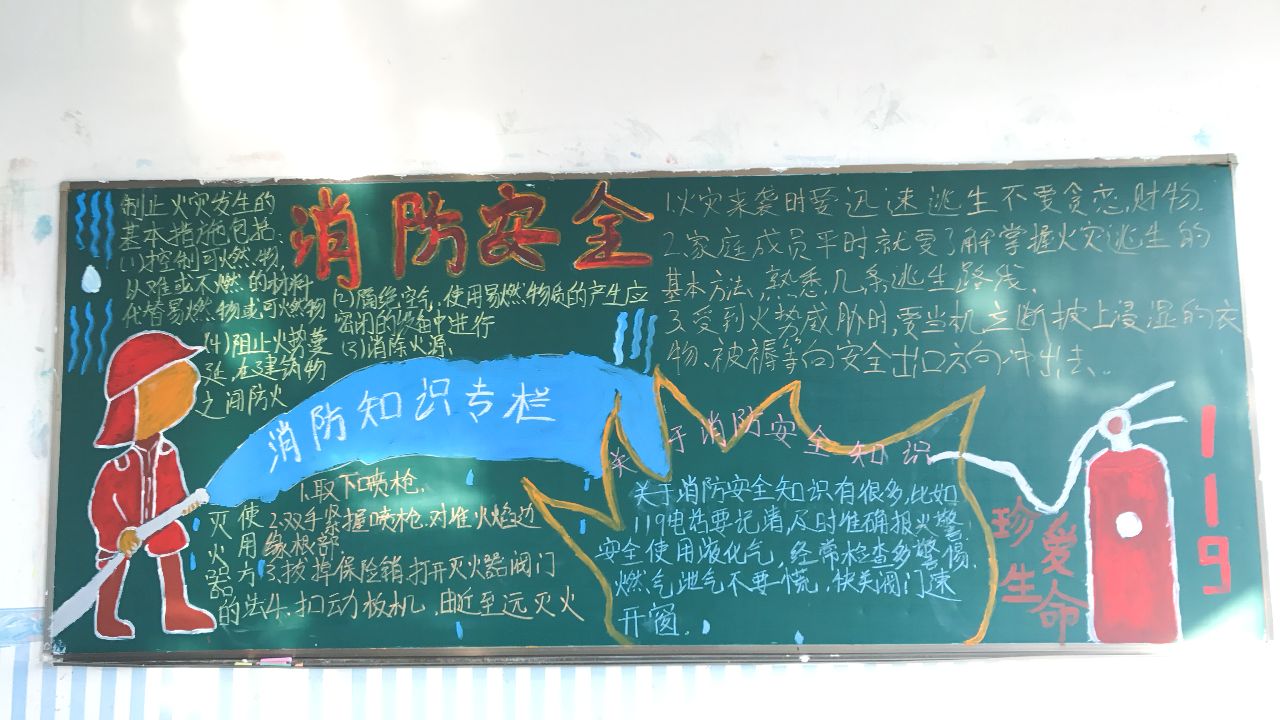 消防安全
制止火灾发生的
基本措施包括:
(1)控制可燃物
以难或不燃的材料
代替易燃物或可燃物
(2)隔绝空气,使用易燃物质的产生应
密闭的设备中进行
(3)消除火源、
(4)阻止火势蔓
延,在建筑物
之间防火
1.火灾来袭时要迅速逃生不要贪恋财物.
2.家庭成员平时就要了解掌握火灾逃生的
基本方法、熟悉几条逃生路线、
3.受到火势威胁时,要当机立断披上浸湿的衣
物、被褥等向安全出口方向冲出去、.
消防知识专栏
灭火器的
使用方法
1.取下喷枪.
2.双手紧握喷枪.对准火焰边
缘根部
3.拔掉保险销,打开灭火器阀门
4.扣动板机,由近至远灭火
关于消防安全知识
关于消防安全知识有很多,比如
119电话要记清,及时准确报火警
安全使用液化气,经常检查多警惕.
燃气泄气不要慌,快关阀门速
开窗.
珍爱
生命
119